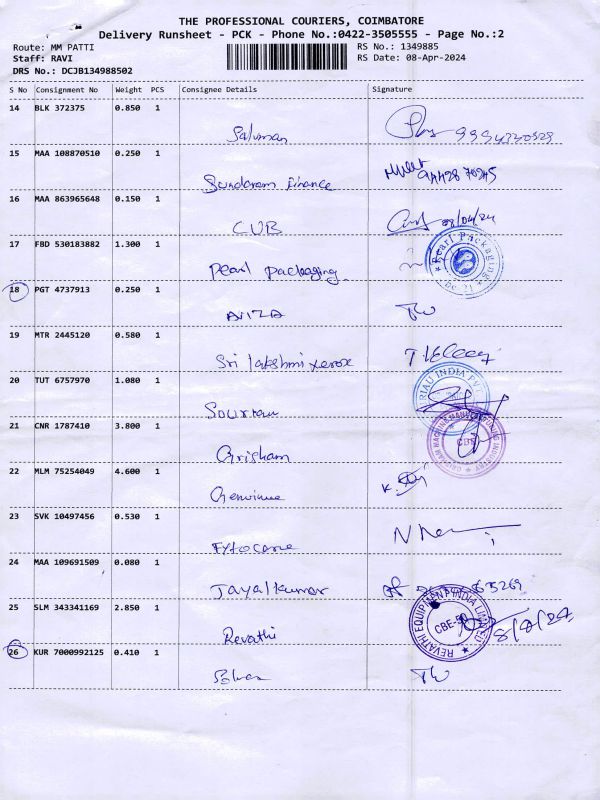 THE PROFESSIONAL COURIERS, COIMBATORE
Delivery Runsheet - PCK - Phone No.:0422-3505555 - Page No.:2
Route: MM PATTI
RS No.: 1349885
Staff: RAVI
RS Date: 08-Apr-2024
DRS No.: DCJB134988502
S No Consignment No Weight PCS Consignee Details Signature
14 BLK 372375 0.850 1
Saluman
15 MAA 108870510 0.250 1
Sundaram Finance
16 MAA 863965648 0.150 1
CUB
17 FBD 530183882 1.300 1
Pearl packaging
Pearl Packaging
18 PGT 4737913 0.250 1
19 MTR 2445120 0.580 1
Sri lakshmi xerox
20 TUT 6757970 1.080 1
RIAU INDIA PV
21 CNR 1787410 3.800 1
CBE
Grisham
22 MLM 75254049 4.600 1
23 SVK 10497456 0.530 1
Fytocare
24 MAA 109691509 0.080 1
Jayalkumar
25 SLM 343341169 2.850 1
REVATHI EQUIPMENT INDIA LIMITED
Revathi
26 KUR 7000992125 0.410 1